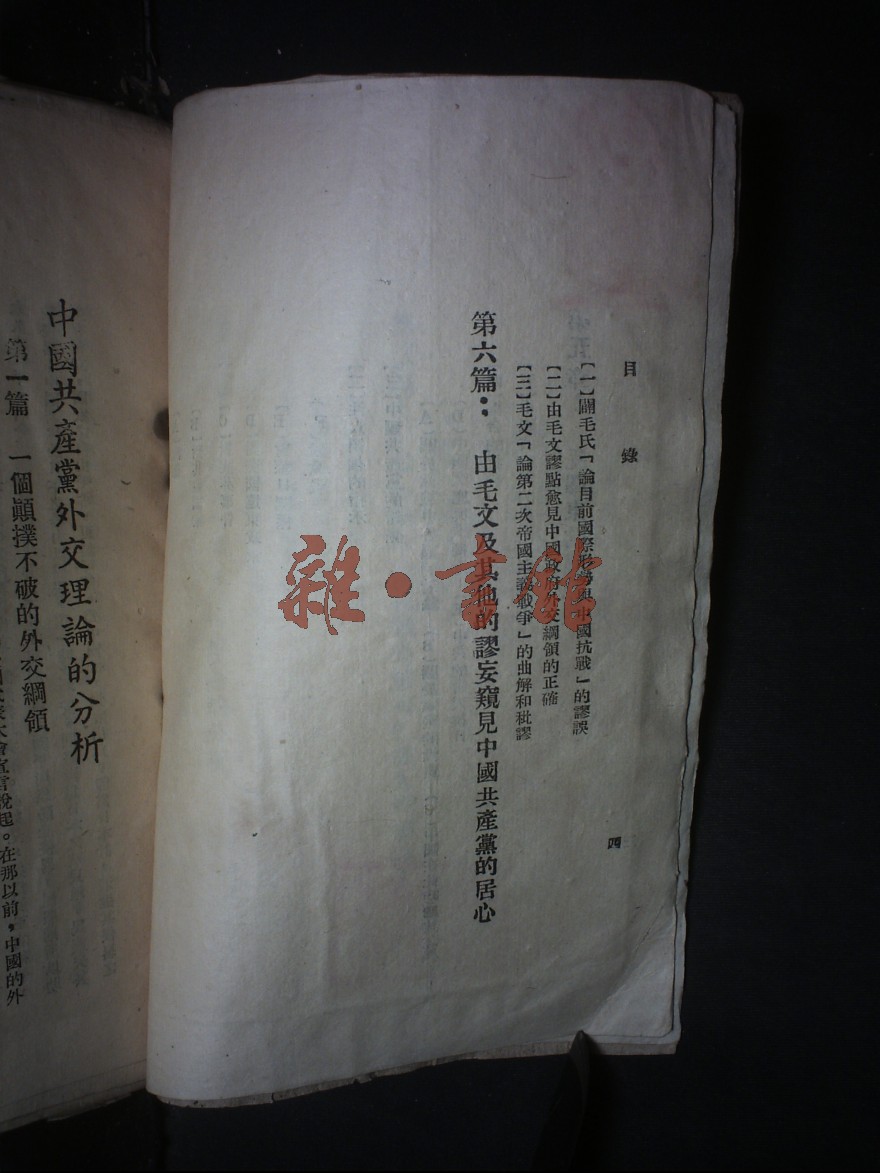 目錄
四
【一】闢毛氏「論目前國際形勢與中國抗戰」的謬誤
【二】由毛文謬點愈見中國政府外交綱領的正確
【三】毛文「論第二次帝國主義戰爭」的曲解和秕謬
第六篇：由毛文及其他的謬妄窺見中國共產黨的居心
中國共產黨外交理論的分析
第一篇 一個顛撲不破的外交綱領
大會宣言說起。在那以前，中國的外
雜·書館